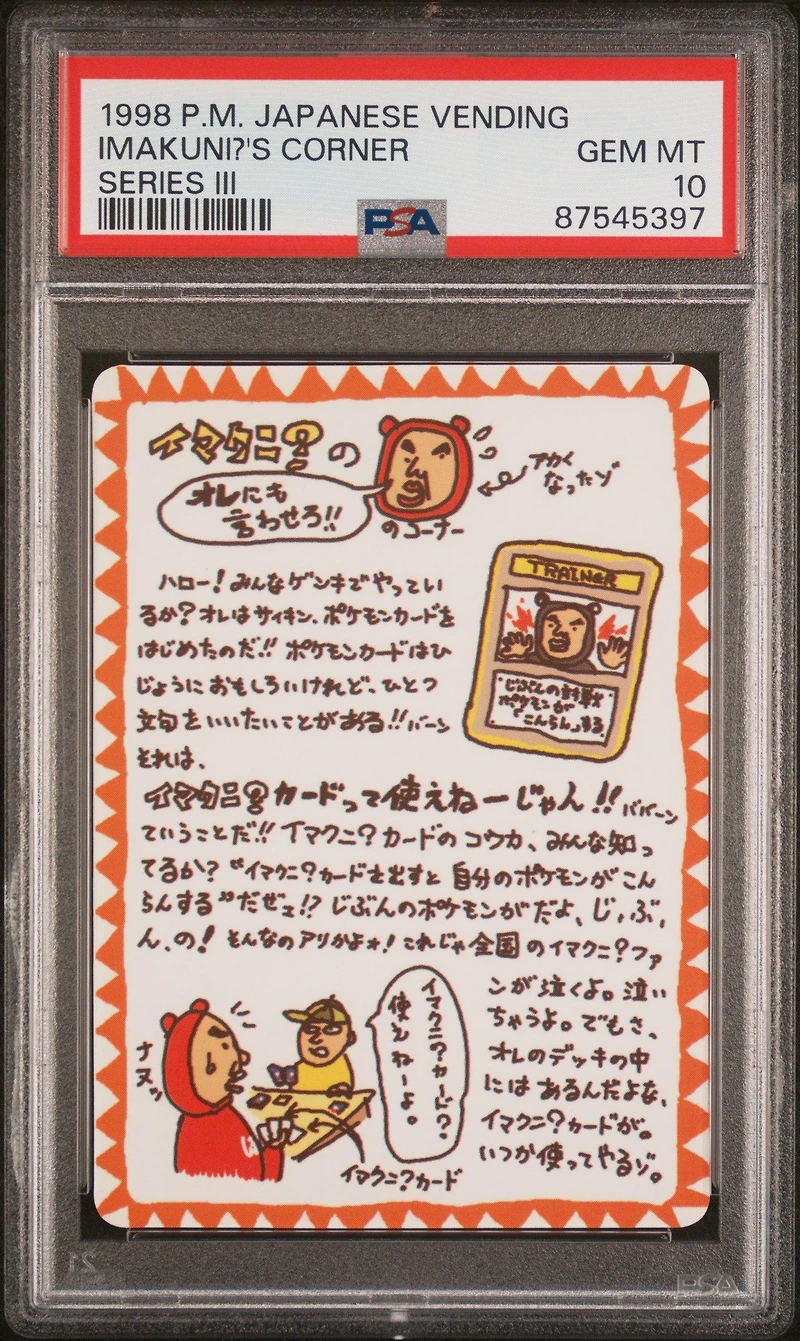 1998 P.M. JAPANESE VENDING
IMAKUNI?'S CORNER GEM MT
SERIES III 10
PSA 87545397
イマクニ?の
オレにも
言わせろ!!
のコーナー
アカく
なったゾ
ハロー!みんなゲンキでやってい
るか?オレはサイキン、ポケモンカードを
はじめたのだ!!ポケモンカードはひ
じょうにおもしろいけれど、ひとつ
文句をいいたいことがある!!バーン
それは、
TRAINER
じぶんの
ポケモンが
「こんらん」する
イマクニ?カードって使えねーじゃん!!ババーン
ていうことだ!!イマクニ?カードのコウカ、みんな知っ
てるか?“イマクニ?カードを出すと自分のポケモンがこん
らんする”だぜェ!?じぶんのポケモンがだよ、じ、ぶ、
ん、の!そんなのアリかよォ!これじゃ全国のイマクニ?ファ
ンが泣くよ。泣い
ちゃうよ。でもさ、
オレのデッキの中
にはあるんだよな、
イマクニ?カードが。
いつか使ってやるゾ。
ナヌッ
イマクニ?カード?
使えねーよ。
イマクニ?カード
PSA